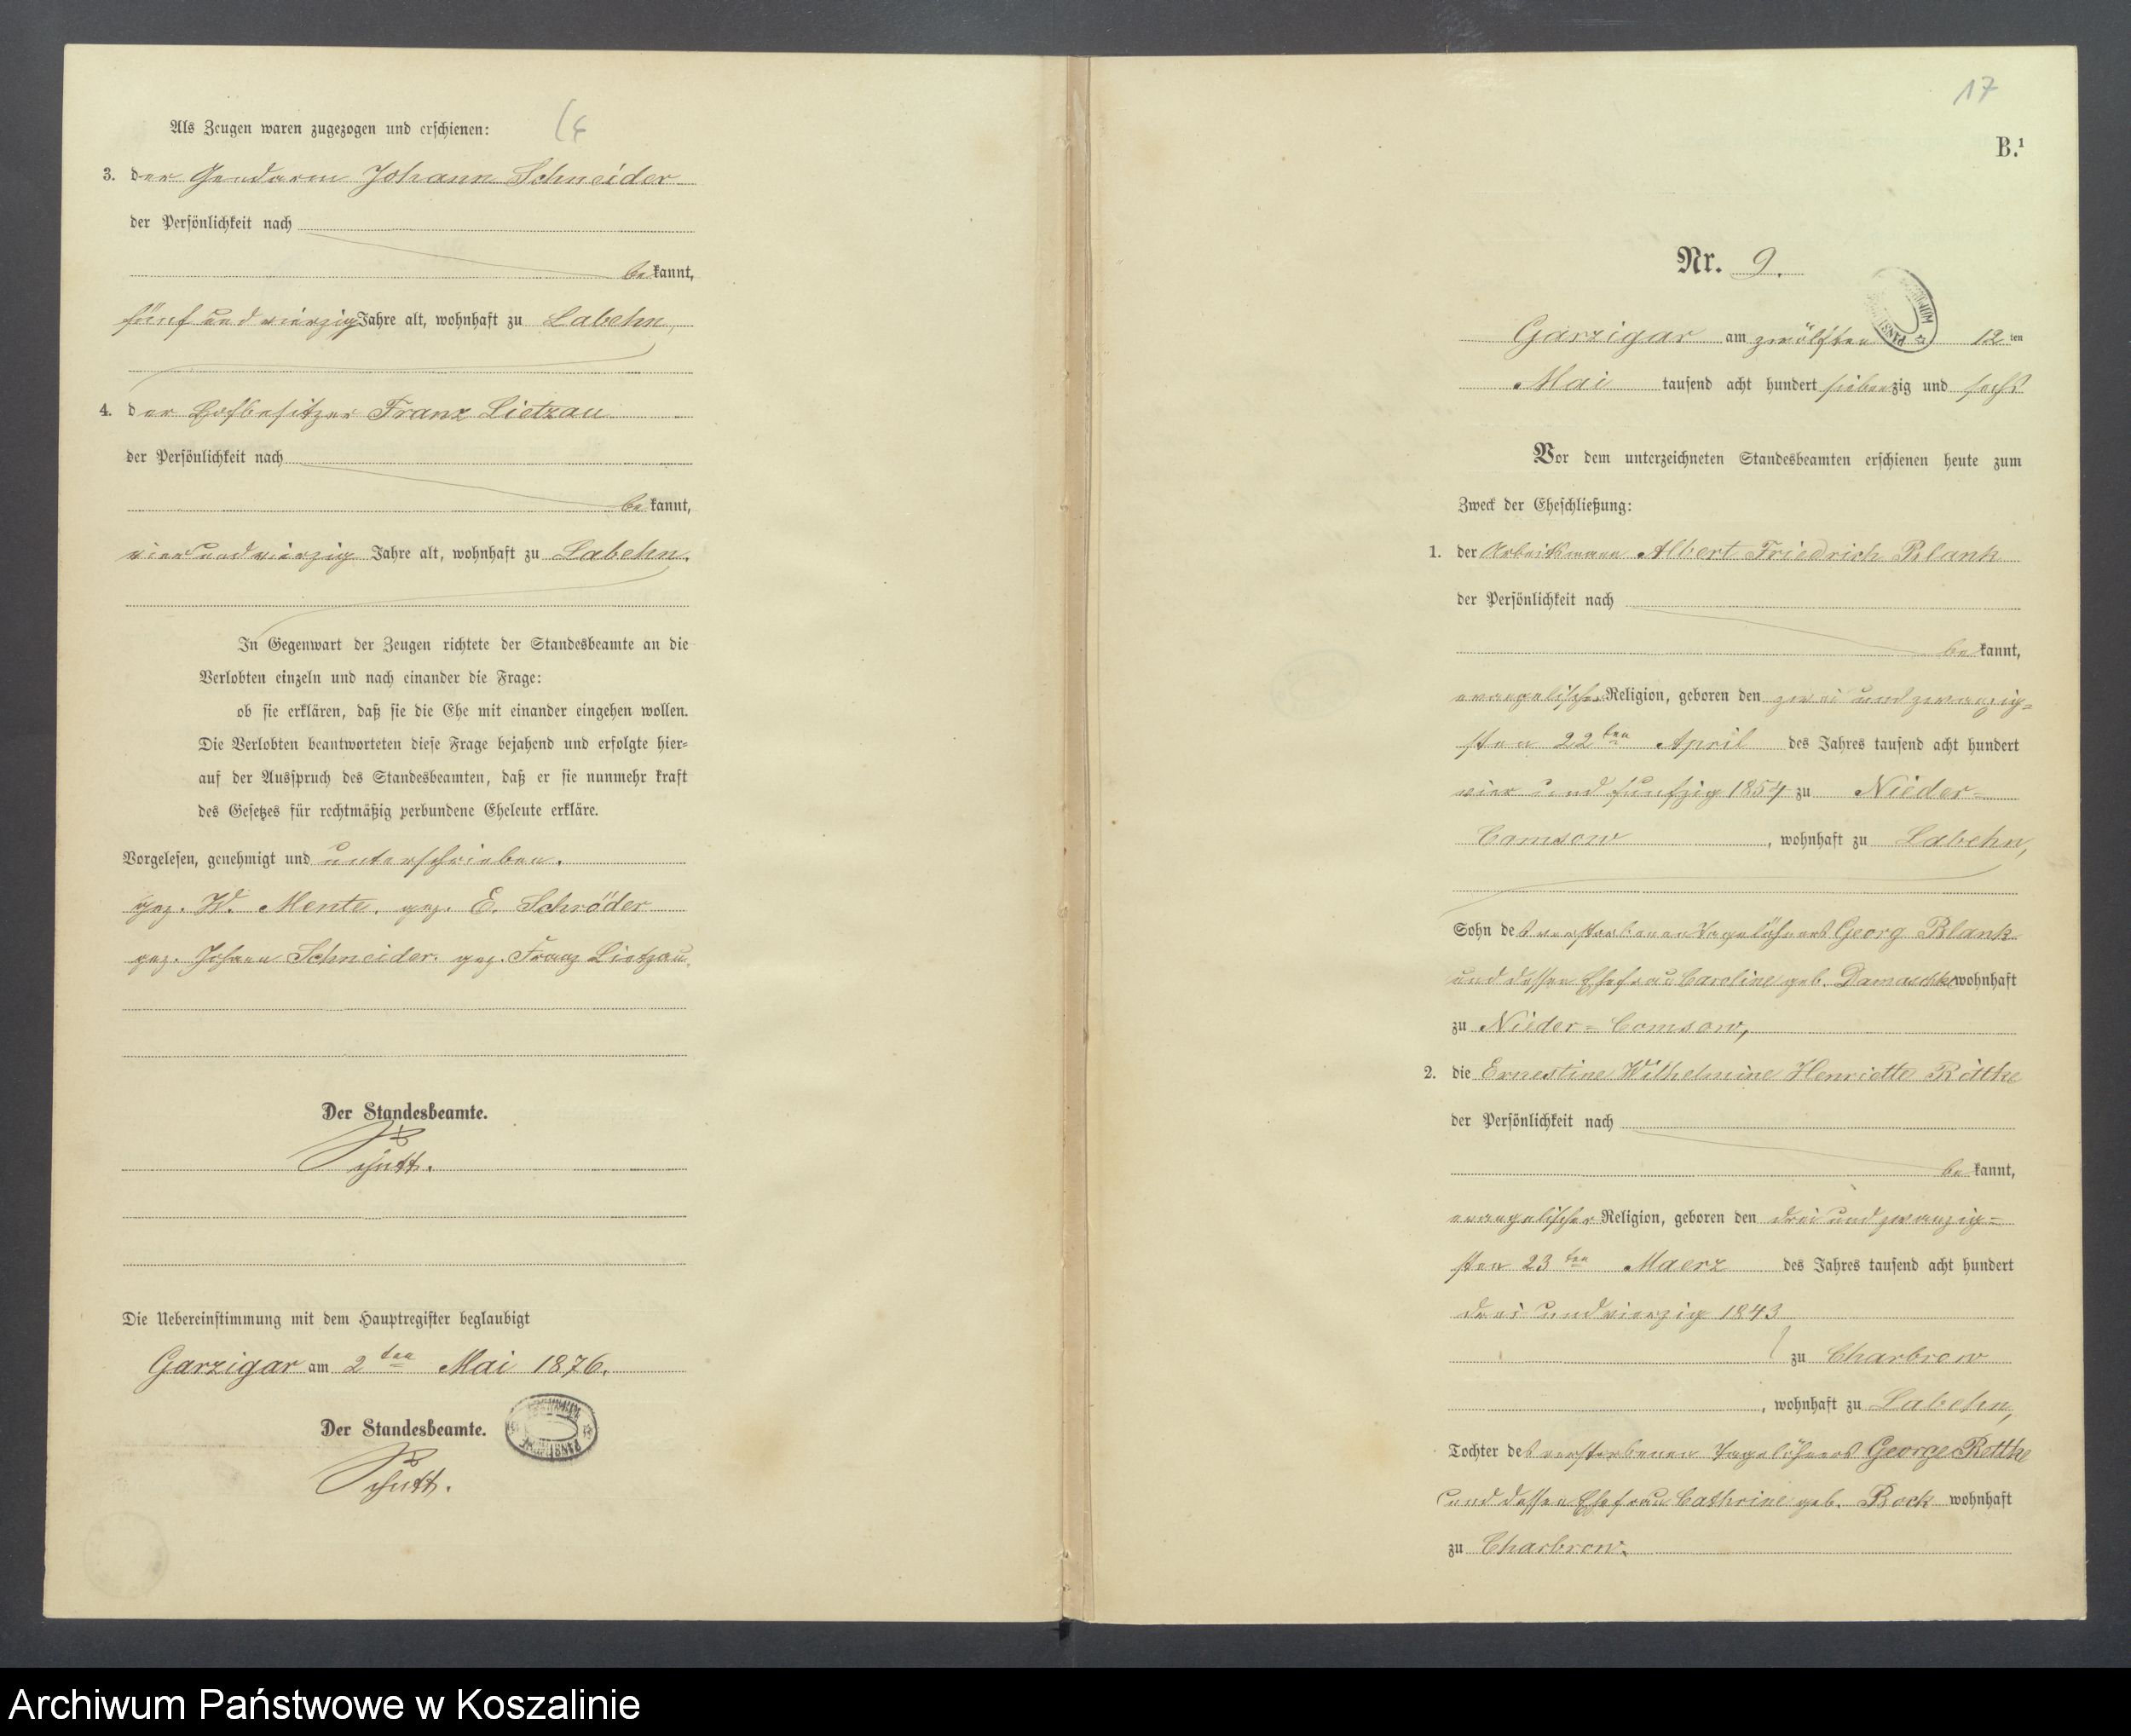 Als Zeugen waren zugezogen und erschienen:
3. der Gendarm Johann Schneider
der Persönlichkeit nach
bekannt,
fünf und vierzig Jahre alt, wohnhaft zu Labehn,
4. der Hofbesitzer Franz Lietzau
der Persönlichkeit nach
bekannt,
vier und vierzig Jahre alt, wohnhaft zu Labehn.
In Gegenwart der Zeugen richtete der Standesbeamte an die
Verlobten einzeln und nach einander die Frage:
ob sie erklären, daß sie die Ehe mit einander eingehen wollen.
Die Verlobten beantworteten diese Frage bejahend und erfolgte hier-
auf der Ausspruch des Standesbeamten, daß er sie nunmehr kraft
des Gesetzes für rechtmäßig verbundene Eheleute erkläre.
Vorgelesen, genehmigt und unterschrieben.
gez. W. Mente. gez. E. Schröder
gez. Johann Schneider. gez. Franz Lietzau.
Der Standesbeamte.
Schütt.
Die Uebereinstimmung mit dem Hauptregister beglaubigt
Garzigar am 2ten Mai 1876.
Der Standesbeamte.
Schütt.
17
B.¹
Nr. 9.
Garzigar am zwölften 12ten
Mai tausend acht hundert siebenzig und sechs
Vor dem unterzeichneten Standesbeamten erschienen heute zum
Zweck der Eheschließung:
1. der Arbeitsmann Albert Friedrich Blank
der Persönlichkeit nach
bekannt,
evangelischer Religion, geboren den zwei und zwanzig-
sten 22ten April des Jahres tausend acht hundert
vier und funfzig 1854 zu Nieder-
Comsow, wohnhaft zu Labehn,
Sohn des verstorbenen Tagelöhners Georg Blank
und dessen Ehefrau Caroline geb. Damaschke wohnhaft
zu Nieder-Comsow,
2. die Ernestine Wilhelmine Henriette Rettke
der Persönlichkeit nach
bekannt,
evangelischer Religion, geboren den drei und zwanzig-
sten 23ten Maerz des Jahres tausend acht hundert
drei und vierzig 1843
zu Charbrow
, wohnhaft zu Labehn,
Tochter des verstorbenen Tagelöhners George Rettke
und dessen Ehefrau Cathrine geb. Bock wohnhaft
zu Charbrow.
Archiwum Państwowe w Koszalinie